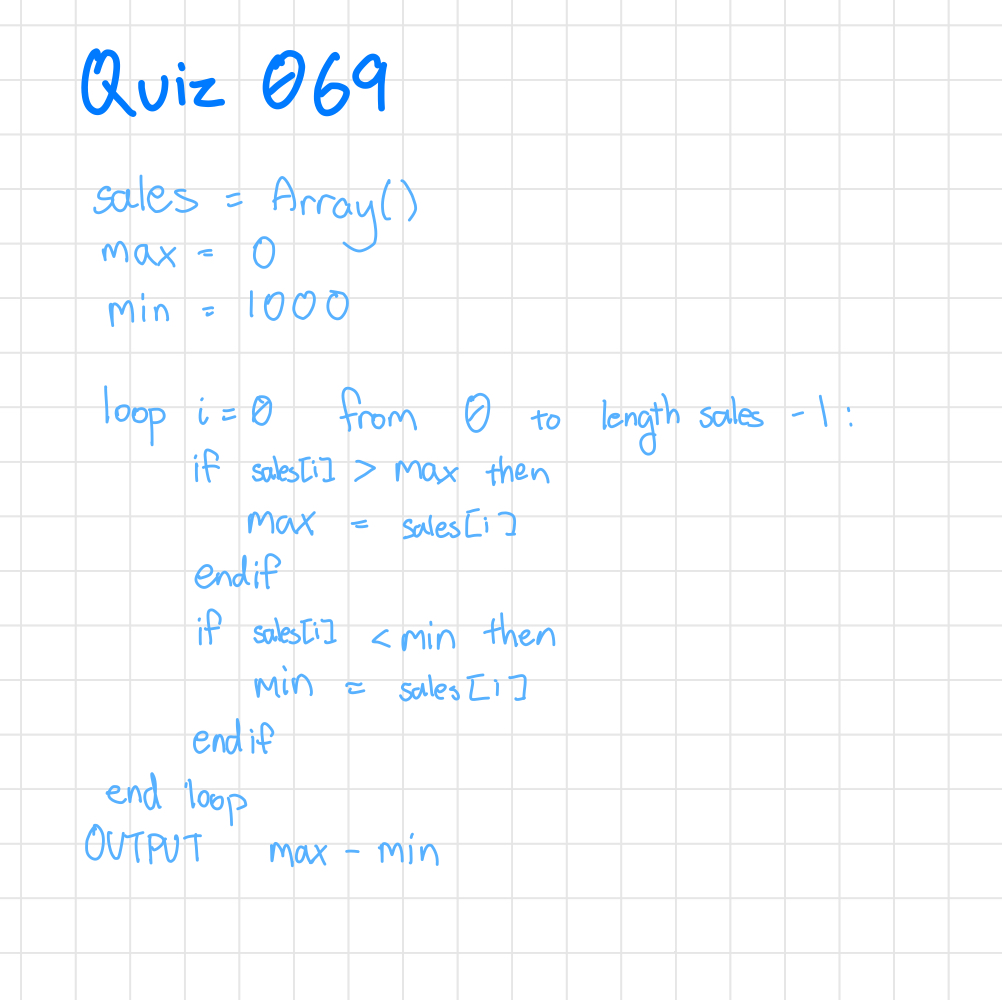 Quiz 069
sales = Array()
max = 0
min = 1000
loop i = 0 from 0 to length sales - 1 :
if sales[i] > max then
max = sales[i]
endif
if sales[i] < min then
min = sales[i]
endif
end loop
OUTPUT max - min